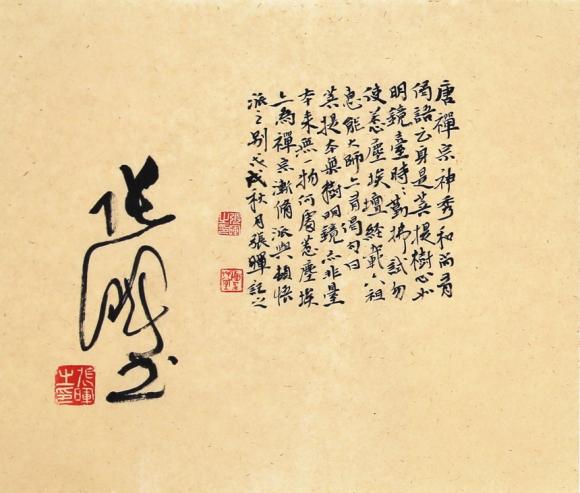 唐禪宗神秀和尚有
偈語云身是菩提樹心如
明鏡臺時々勤拂試勿
使惹塵埃壇經載六祖
惠能大師亦有偈句曰
菩提本無樹明鏡亦非臺
本來無一物何處惹塵埃
上為禪宗漸脩派與頓悟
派之別戊戌秋月張暉記之
張暉之印
张暉书
張暉之印